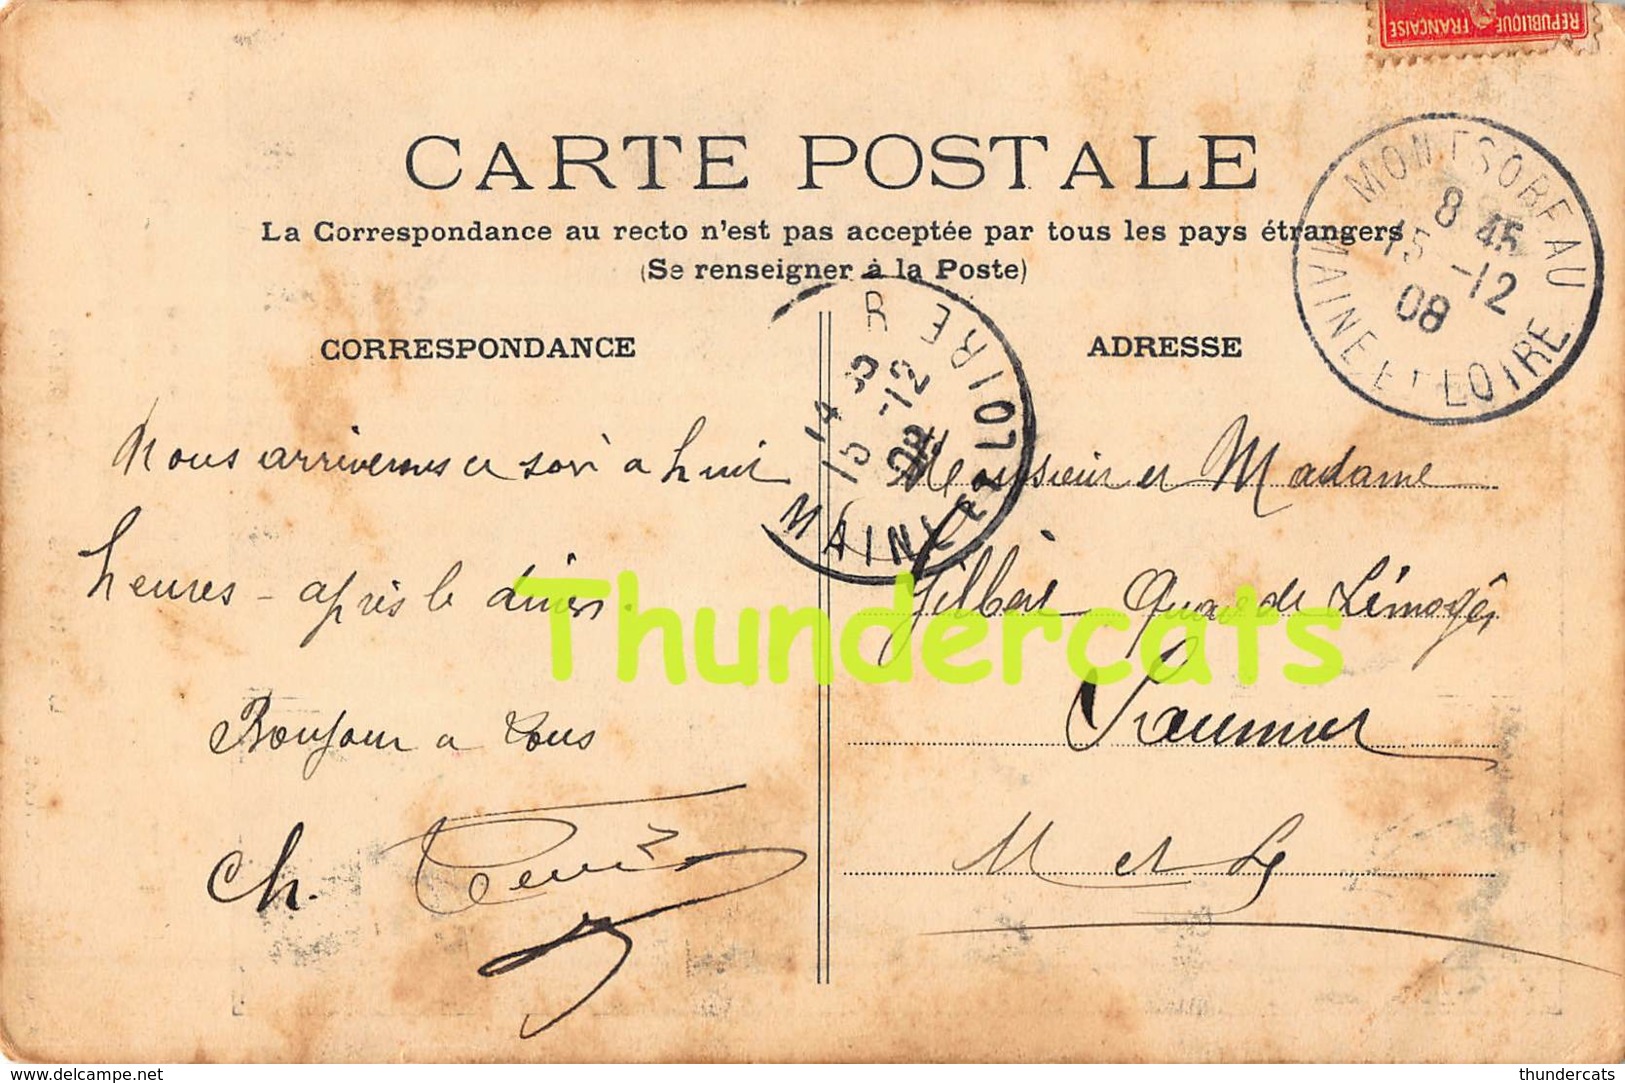 REPUBLIQUE FRANÇAISE
CARTE POSTALE
La Correspondance au recto n'est pas acceptée par tous les pays étrangers
(Se renseigner à la Poste)
MONTSOREAU
8 45
15 -12
08
MAINE ET LOIRE
CORRESPONDANCE
ADRESSE
14
15 -12
08
MAINE ET LOIRE
Nous arriverons ce soir a huit
heures - après le diner.
Bonjour a tous
Ch.
Monsieur et Madame
Gilbert Quai de Limoges
Saumur
M et L
Thundercats
delcampe.net
thundercats